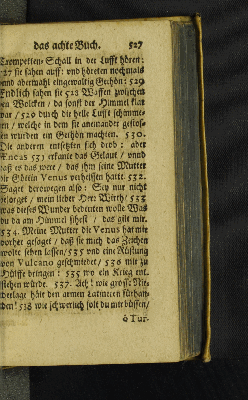 das achte Buch. 527
Trompeten-Schall in der Lufft hören:
527 sie sahen auff: und höreten nochmals
und abermahl eingewaltig Gethön: 529
Endlich sahen sie 528 Waffen zwischen
Wolcken / da sonst der Himmel klar
war / 529 durch die helle Lufft schimme-
rn / welche in dem sie aneinander gestos-
sen wurden ein Gethön machten. 530.
Die anderen entsetzten sich drob: aber
Æneas 531 erkante das Gelaut / unnd
daß es das were / das ihm seine Mutter
die Göttin Venus verheissen hatte. 532.
Saget derowegen also: Sey nur nicht
besorget / mein lieber Herr Wirth / 533
was dieses Wunder bedeuten wolle Was
du da am Himmel sihest / das gilt mir.
534. Meine Mutter die Venus hat mir
vorher gesaget / daß sie mich das Zeichen
wolte sehen lassen / 535 und eine Rüstung
von Vulcano geschmiedet / 536 mir zu
Hülffe bringen: 535 wo ein Krieg ent-
stehen würde. 537. Ach! wie grosse Nie-
derlage steht den armen Latinern fürhan-
den! 538 wie schwerlich solt du mir büssen /
ô Tur-